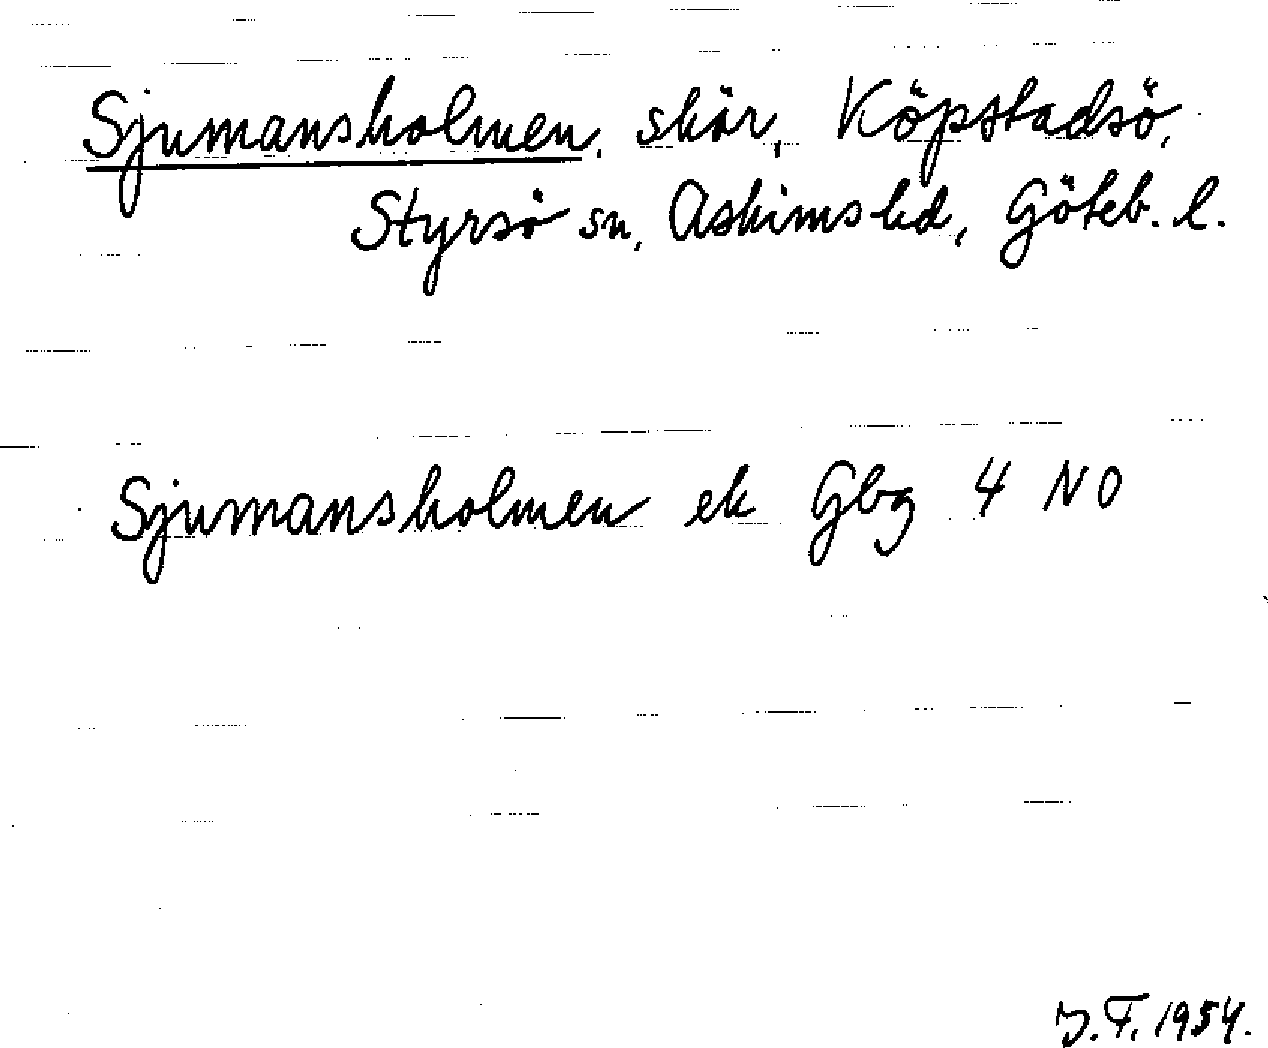 Sjumansholmen, skär, Köpstadsö,
Styrsö sn, Askims hd, Göteb. l.
Sjumansholmen ek Gbg 4 NO
J.F. 1954.